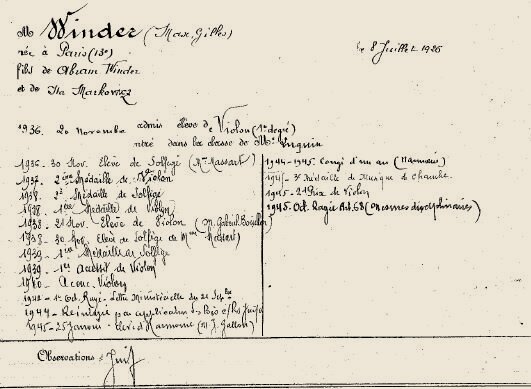 Mr Winder (Max, Gilles)
née à Paris (13e) le 8 Juillet 1926
fils de Abram Winder
et de Ita Markovicz
1936. 20 Novembre admis élève de Violon (1er degré)
entré dans la classe de Mr
1936. 30 Nov. Elève de Solfège (Mme Massart)
1937. 2ème Médaille de Violon
1938. 2e Médaille de Solfège
1938 - 1ère Médaille de Violon
1938 - 21 Nov. Elève de Violon (M. Gabriel Bouillon)
1938 - 30 Nov. Elève de Solfège de Mme Massart
1939 - 1ère Médaille de Solfège
1939 - 1er Accessit de Violon
1940 - Violon
1942 - 1er Oct. Rayé - Lettre Ministérielle du 21 Sept
1944 - Réintégré par application
1945 - 25 Janvier - élève d'Harmonie (M. J. Gallon)
1944-1945. Congé d'un an
1945 - 3e Médaille de Musique de Chambre
1945 - 2d Prix de Violon
1945. Oct. Rayé Art. 68 (Mesures disciplinaires)
Observations : Juif